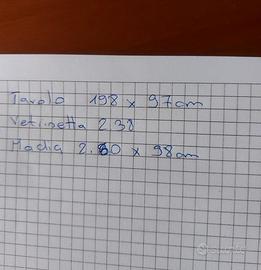 Tavolo 198 x 97cm
Vetrinetta 2 38
Madia 2.60 x 98cm